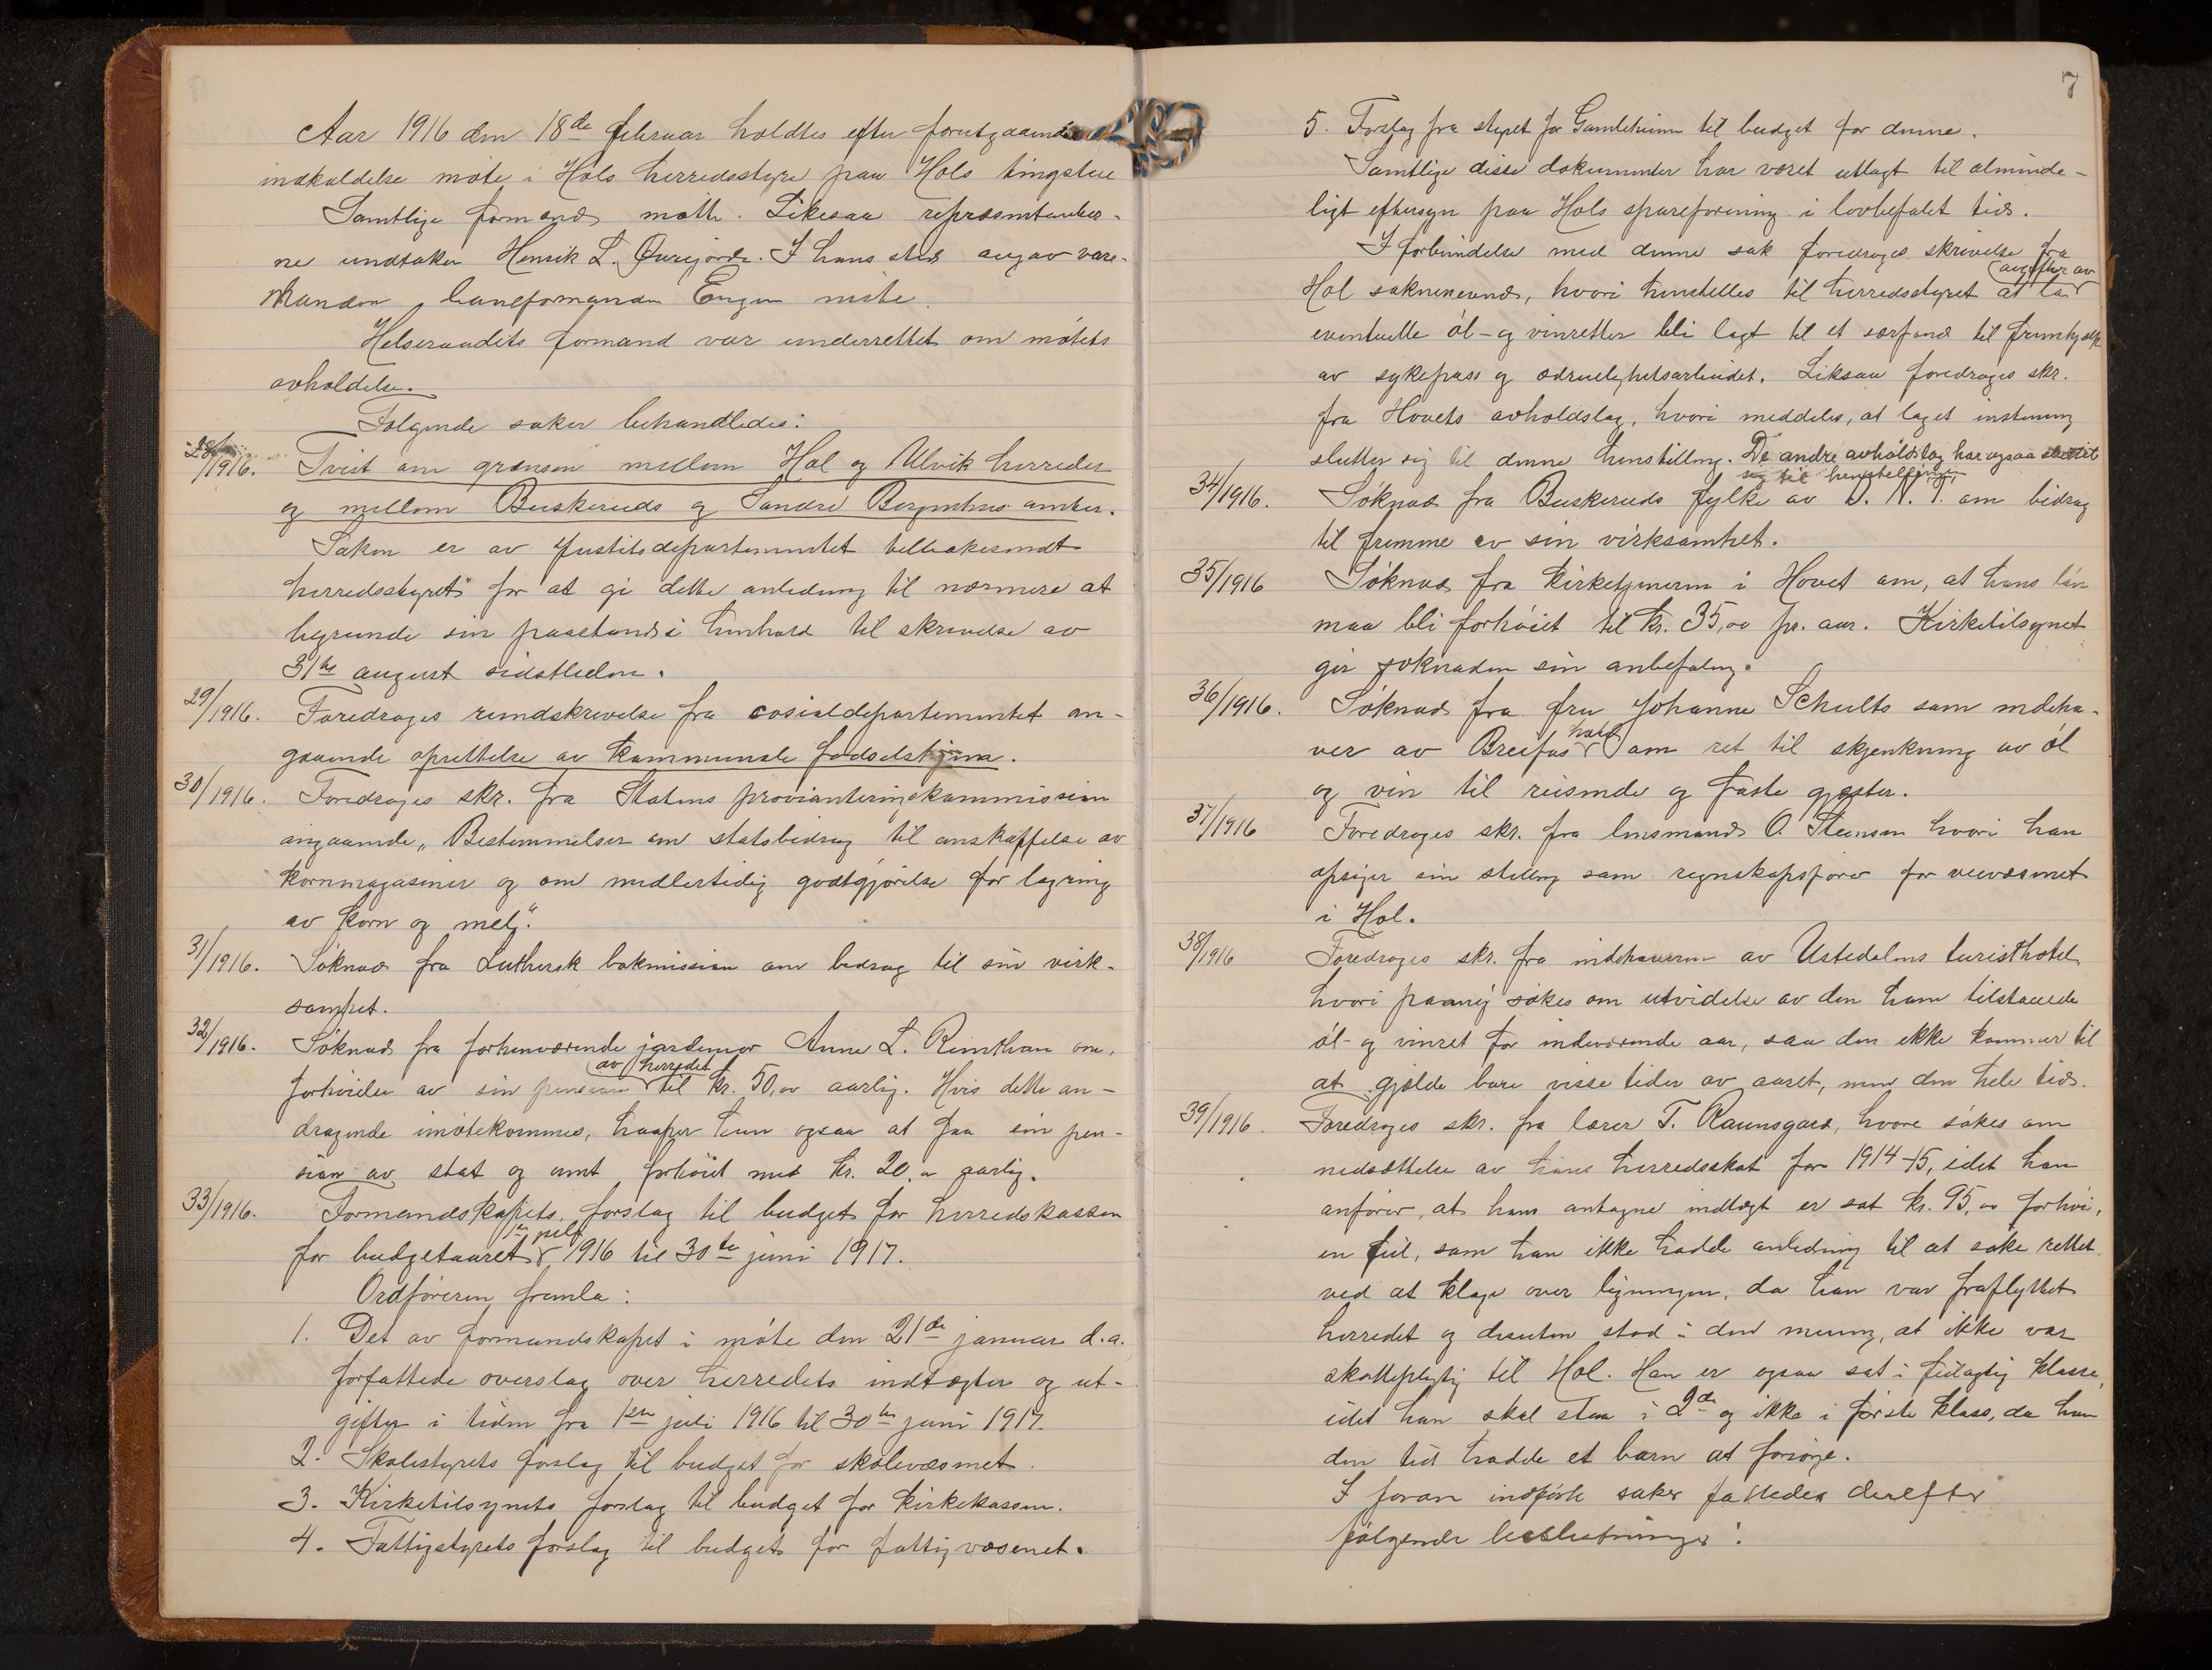 Aar 1916 den 18de februar holdtes efter forutgaaende
indkaldelse møte i Hols herredsstyre paa Hols tingstue
Samtlige formænd møtte. Likesaa repræsentanter-
ne undtaken Henrik L. Øvrejorde. I hans sted avgav vara-
manden, baneformanden Engen møte.
Helseraadets formand var underrettet om møtets
avholdelse.
Følgende saker behandledes:
28/1916. Tvist om grænsen mellem Hol og Ulvik herreder
og mellem Buskeruds og Søndre Bergenhus amter.
Saken er av Justitsdepartementet tilbakesendt
herredsstyret for at gi dette anledning til nærmere at
begrunde sin paastand i henhold til skrivelse av
31te august sidstleden.
29/1916. Foredroges rundskrivelse fra socialdepartementet an-
gaaende oprettelse av kommunale fødselshjem.
30/1916. Foredroges skr. fra Statens provianteringskommission
angaaende „Bestemmelser om statsbidrag til anskaffelse av
kornmagasiner og om midlertidig godtgjørelse for lagring
av korn og mel".
31/1916. Søknad fra Luthersk bokmission om bidrag til sin virk-
somhet.
32/1916. Søknad fra forhenværende jordemor Anne L. Rimthun om,
av herredet
forhøielse av sin pension til kr. 50,00 aarlig. Hvis dette an-
dragende imøtekommes, haaper hun ogsaa at faa sin pen-
sion av stat og amt forhøiet med kr. 20,00 aarlig.
33/1916. Formandskapets forslag til budget for herredskassen
1ste juli
for budgetaaret 1916 til 30te juni 1917.
Ordføreren fremla:
1. Det av formandskapet i møte den 21de januar d.a.
forfattede overslag over herredets indtægter og ut-
gifter i tiden fra 1ste juli 1916 til 30te juni 1917.
2. Skolestyrets forslag til budget for skolevæsenet.
3. Kirketilsynets forslag til budget for kirkekassen.
4. Fattigstyrets forslag til budget for fattigvæsenet.
7
5. Forslag fra styret for Gamleheimen til budget for denne.
Samtlige disse dokumenter har været utlagt til alminde-
ligt eftersyn paa Hols spareforening i lovbefalet tid.
I forbindelse med denne sak foredroges skrivelse fra
avgifter av
Hol soknenevnd, hvori henstilles til herredsstyret at la
eventuelle øl- og vinretter bli lagt til et særfond til fremhjælp
av sykepass og ædruelighetsarbeidet. Likesaa foredroges skr.
fra Hovets avholdslag, hvori meddeles, at laget enstemmig
slutter sig til denne henstilling. De andre avholdslag har ogsaa sluttet
sig til henstillingen.
34/1916. Søknad fra Buskeruds fylke av D. N. T. om bidrag
til fremme av sin virksomhet.
35/1916 Søknad fra kirketjeneren i Hovet om, at hans løn
maa bli forhøiet til kr. 35,00 pr. aar. Kirketilsynet
gir søknaden sin anbefaling.
36/1916. Søknad fra fru Johanne Schults som indeha-
hotel
ver av Breifos om ret til skjenkning av øl
og vin til reisende og faste gjæster.
37/1916 Foredroges skr. fra lensmand O. Steensen hvori han
opsiger sin stilling som regnskapsfører for veivæsenet
i Hol.
38/1916 Foredroges skr. fra indehaveren av Ustedalens turisthotel,
hvori paany søkes om utvidelse av den ham tilstaaede
øl- og vinret for indeværende aar, saa den ikke kommer til
at gjælde bare visse tider av aaret, men den hele tid.
39/1916. Foredroges skr. fra lærer T. Raunsgard, hvori søkes om
nedsættelse av hans herredsskat for 1914-15, idet han
anfører, at hans antagne indtægt er sat kr. 95,00 forhøi,
en feil, som han ikke hadde anledning til at søke rettet
ved at klage over ligningen, da han var fraflyttet
herredet og desuten stod i den mening, at ikke var
skattepligtig til Hol. Han er ogsaa sat i feilagtig klasse,
idet han skal staa i 2de og ikke i første klasse, da han
den tid hadde et barn at forsørge.
I foran indførte saker fattedes derefter
følgende beslutninger: